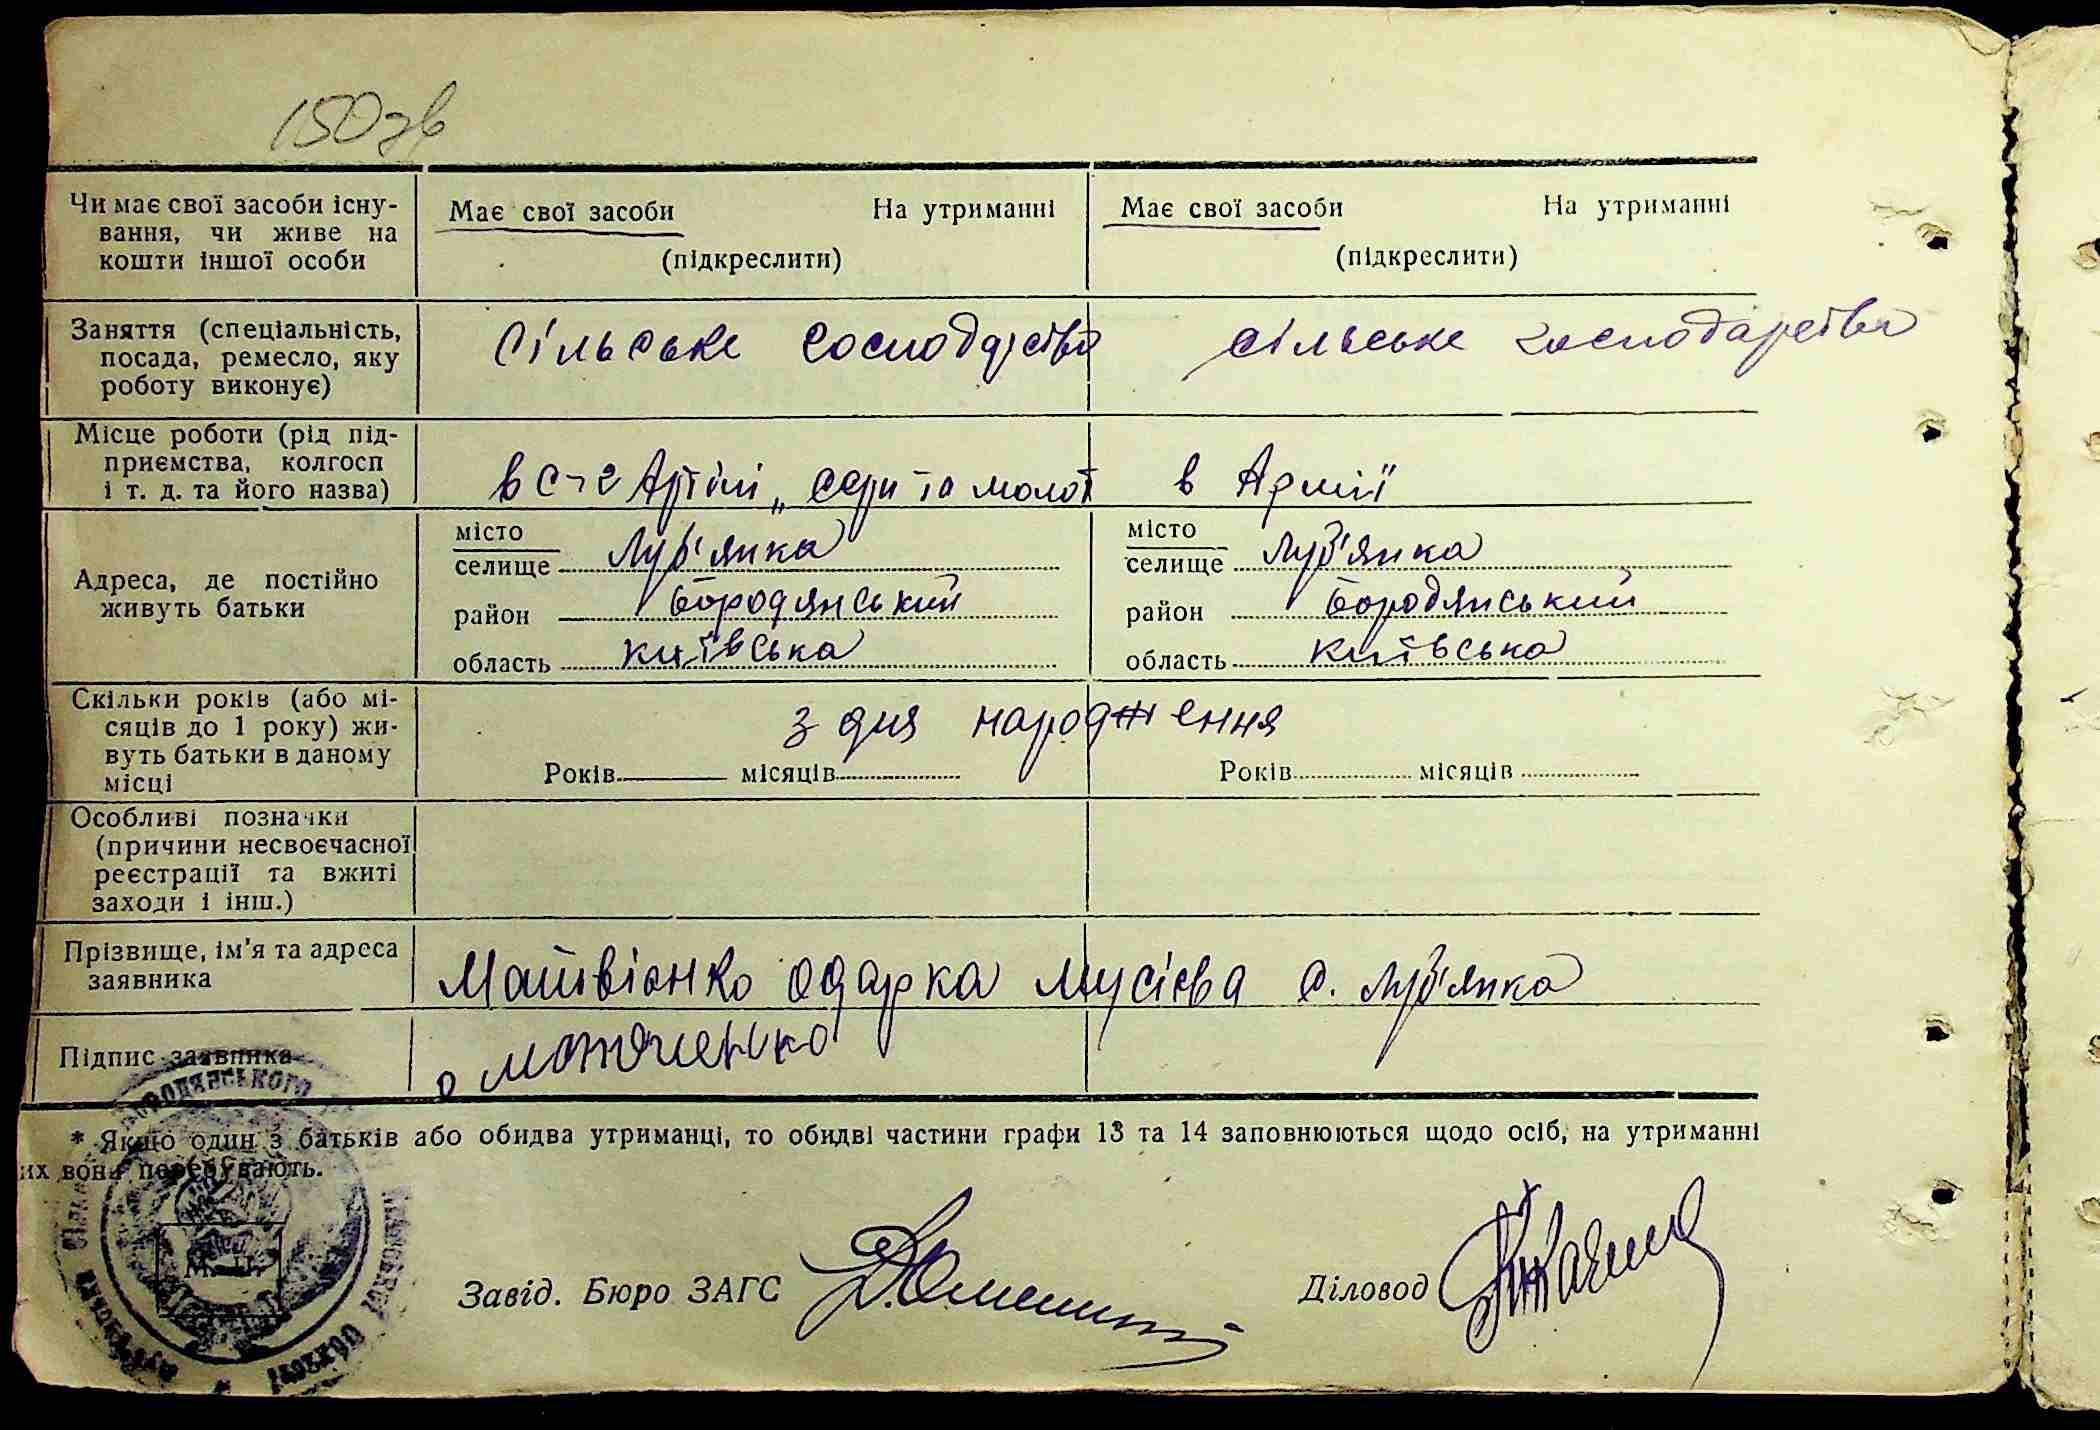 150зв
Чи має свої засоби існу-
вання, чи живе на
кошти іншої особи
Має свої засоби На утриманні
(підкреслити)
Має свої засоби На утриманні
(підкреслити)
Заняття (спеціальність,
посада, ремесло, яку
роботу виконує)
сільське господарство
сільське господарство
Місце роботи (рід під-
приємства, колгосп
і т. д. та його назва)
в с-г Артілі „серп та молот
в Армії"
Адреса, де постійно
живуть батьки
місто
селище Луб'янка
район Бородянський
область київська
місто
селище Луб'янка
район Бородянський
область київська
Скільки років (або мі-
сяців до 1 року) жи-
вуть батьки в даному
місці
з дня народження
Років місяців
Років місяців
Особливі позначки
(причини несвоєчасної
реєстрації та вжиті
заходи і інш.)
Прізвище, ім'я та адреса
заявника
Матвієнко Одарка Мусієва с. Луб'янка
Підпис заявника
* Якщо один з батьків або обидва утриманці, то обидві частини графи 13 та 14 заповнюються щодо осіб, на утриманні
их вони перебувають.
М. П.
Завід. Бюро ЗАГС
Діловод